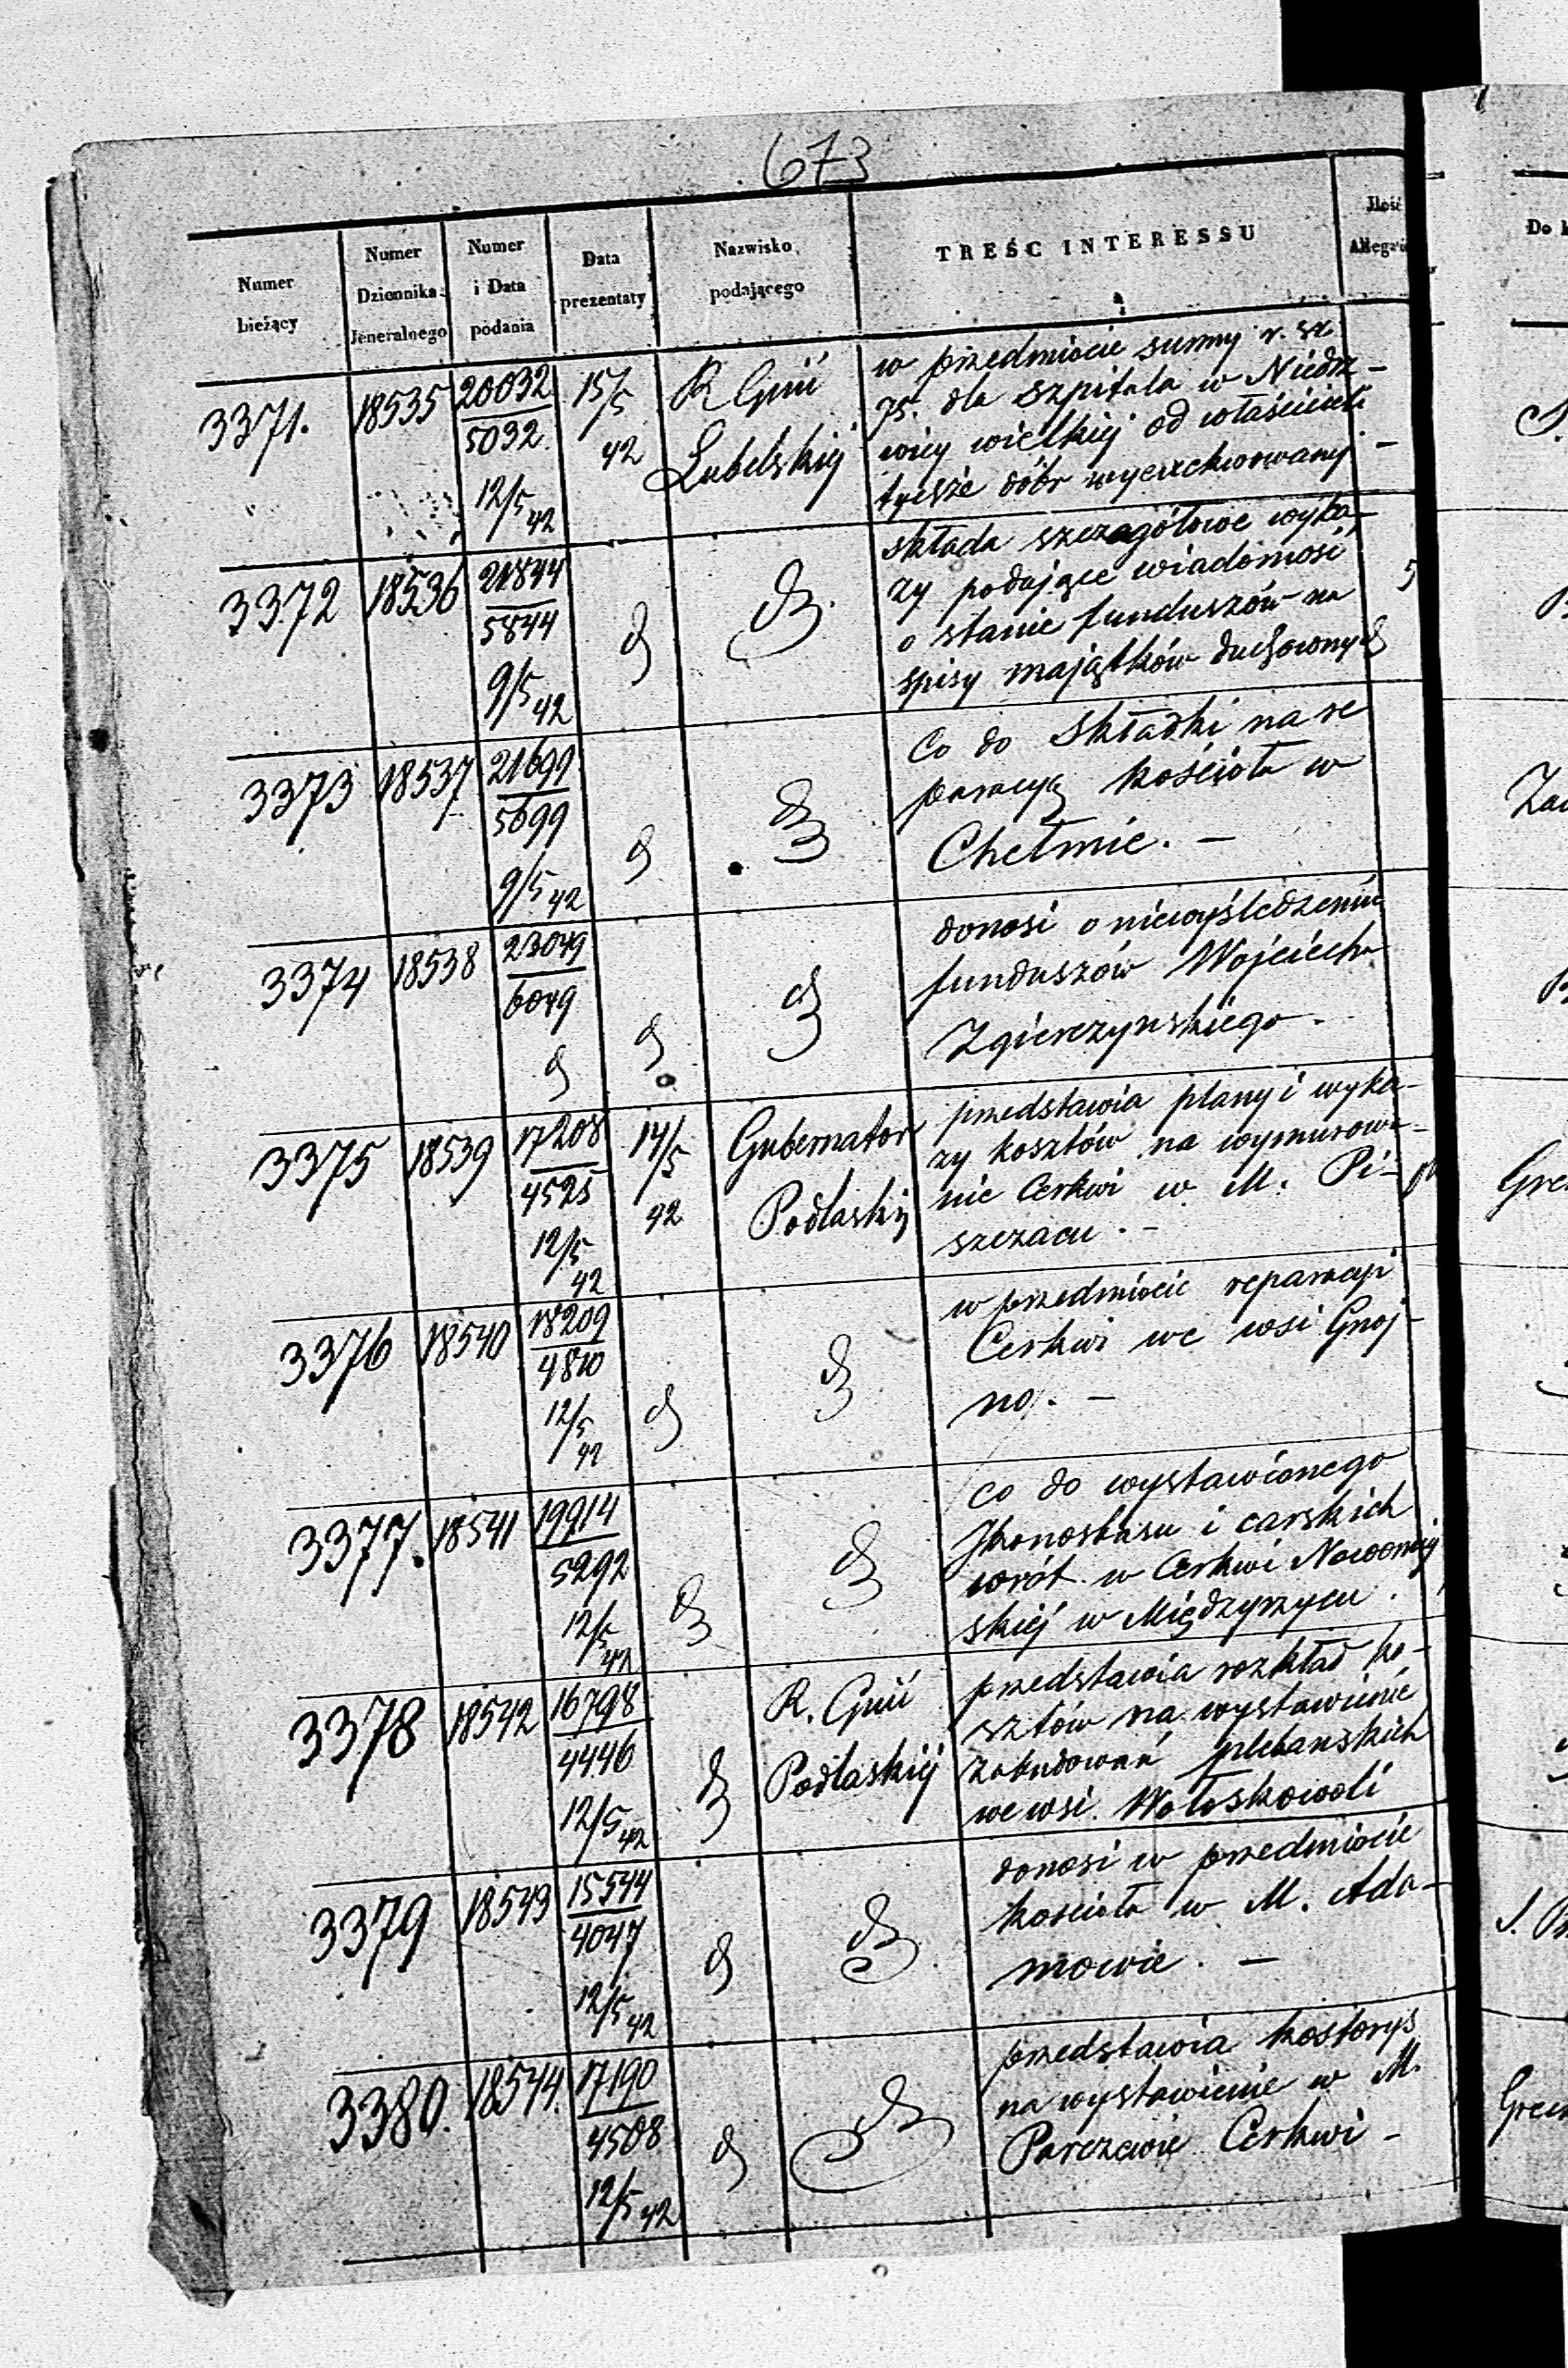 673
Numer bieżący | Numer Dziennika Jeneralnego | Numer i Data podania | Data prezentaty | Nazwisko podającego | TREŚC INTERESSU | Jlość
3371. | 18535 | 20032 / 5032 12/5 42 | 15/5 42 | R Gnii Lubelskiej | w przedmiocie summy r. sr.
75. dla szpitala w Niedrz-
wicy wielkiej od właściciela
tychże dóbr wyexekwowanej –
3372 | 18536 | 21844 / 5844 9/5 42 | d | d | składa szczegółowe wyka-
zy podające wiadomość
o stanie funduszów na
spisy majątków duchownych | 5
3373 | 18537. | 21699 / 5699 9/5 42 | d | d | Co do składki na re
paracyą kościoła w
Chełmie. –
3374 | 18538 | 23049 / 6049 d | d | d | donosi o niewyśledzeniu
funduszów Wojciecha
Zgierczynskiego.
3375 | 18539 | 17208 / 4525 12/5 42 | 14/5 42 | Gubernator Podlaski | przedstawia plany i wyka-
zy kosztów na wymurowa-
nie Cerkwi w M. Pi-
szczacu. –
3376 | 18540 | 18209 / 4810 12/5 42 | d | d | w przedmiocie reparacyi
Cerkwi we wsi Gnoj-
no. –
3377. | 18541 | 19914 / 5292 12/5 42 | d | d | co do wystawionego
Jkonostasu i carskich
wrót w Cerkwi
skiéj w Międzyrzycu.
3378 | 18542 | 16798 / 4446 12/5 42 | d | R. Gnii Podlaskiej | przedstawia rozkład ko-
sztów na wystawienie
zabudowań plebanskich
we wsi Wołoskowoli
3379 | 18543 | 15544 / 4047 12/5 42 | d | d | donosi w przedmiocie
kościoła w M. Ada-
mowie. –
3380. | 18544. | 17190 / 4508 12/5 42 | d | d | przedstawia kosztorys
na wystawienie w M.
Parczewie Cerkwi –